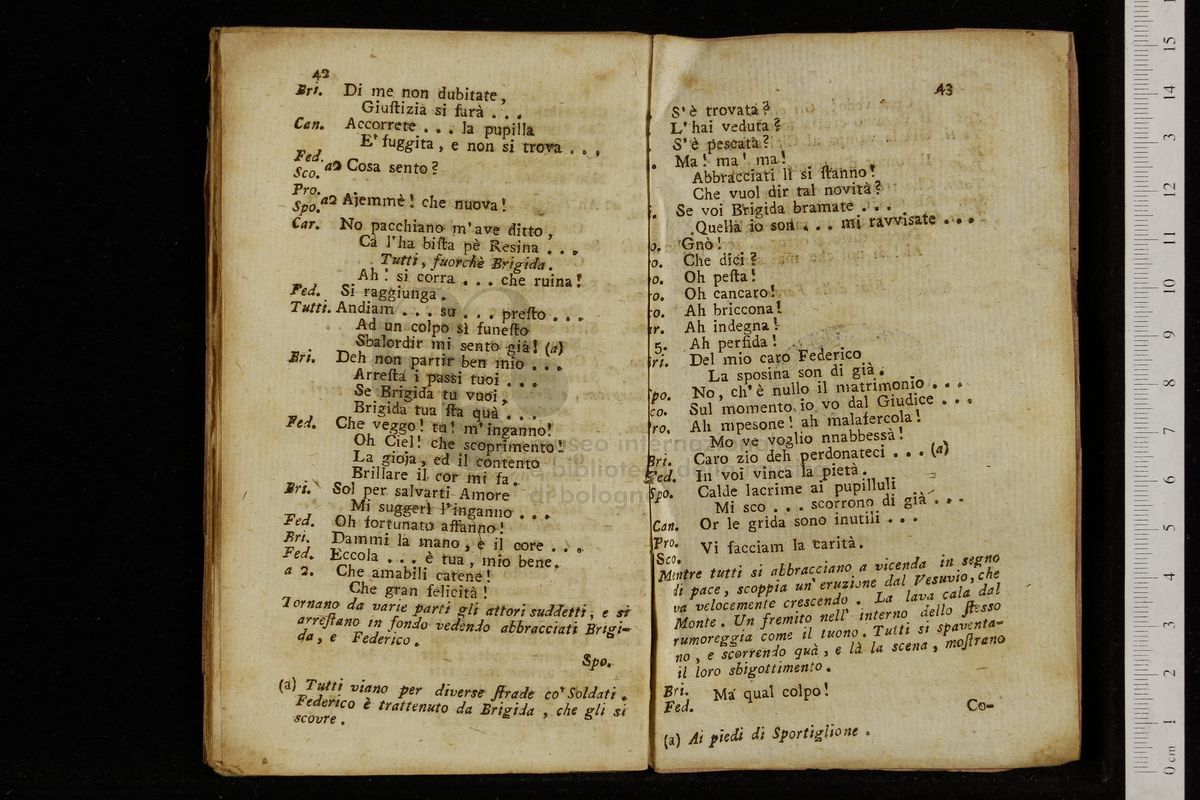 42
Bri. Di me non dubitate,
Giuſtizia si farà . . .
Can. Accorrete . . . la pupilla
E' fuggita, e non si trova . . .
Fed.
Sco. a2 Cosa sento?
Pro.
Spo. a2 Ajemmè! che nuova!
Car. No pacchiano m'ave ditto,
Ca l'ha biſta pè Resina . . .
Tutti, fuorchè Brigida.
Ah! si corra . . . che ruina!
Fed. Si raggiunga.
Tutti. Andiam . . . su . . . preſto . . .
Ad un colpo sì funeſto
Sbalordir mi sento già! (a)
Bri. Deh non partir ben mio . . .
Arreſta i passi tuoi . . .
Se Brigida tu vuoi,
Brigida tua ſta quà . . .
Fed. Che veggo! tu! m'inganno!
Oh Ciel! che scoprimento!
La gioja, ed il contento
Brillare il cor mi fa.
Bri. Sol per salvarti Amore
Mi suggerì l'inganno . . .
Fed. Oh fortunato affanno!
Bri. Dammi la mano, e il core . . .
Fed. Eccola . . . è tua, mio bene.
a 2. Che amabili catene!
Che gran felicità!
Tornano da varie parti gli attori suddetti, e si
arreſtano in fondo vedendo abbracciati Brigi-
da, e Federico.
Spo.
(a) Tutti viano per diverse ſtrade co' Soldati.
Federico è trattenuto da Brigida, che gli si
scovre.
43
S'è trovata?
L'hai veduta?
S'è pescata?
Ma! ma! ma!
Abbracciati lì si ſtanno!
Che vuol dir tal novità?
Se voi Brigida bramate . . .
Quella io son . . . mi ravvisate . . .
o. Gnò!
o. Che dici?
o. Oh peſta!
o. Oh cancaro!
co. Ah briccona!
ar. Ah indegna!
5. Ah perfida!
Bri. Del mio caro Federico
La sposina son di già.
Spo. No, ch'è nullo il matrimonio . . .
co. Sul momento io vo dal Giudice . . .
Pro. Ah mpesone! ah malafercola!
Mo ve voglio nnabbessà!
Bri. Caro zio deh perdonateci . . . (a)
Fed. In voi vinca la pietà.
Spo. Calde lacrime ai pupilluli
Mi sco . . . scorrono di già . . .
Can. Or le grida sono inutili . . .
Pro.
Sco. Vi facciam la carità.
Mentre tutti si abbracciano a vicenda in segno
di pace, scoppia un' eruzione dal Vesuvio, che
va velocemente crescendo. La lava cala dal
Monte. Un fremito nell' interno dello ſtesso
rumoreggia come il tuono. Tutti si spaventa-
no, e scorrendo quà, e là la scena, moſtrano
il loro sbigottimento.
Bri.
Fed. Ma qual colpo!
Co-
(a) Ai piedi di Sportiglione.
museo internaz
e biblioteca d
di bologna